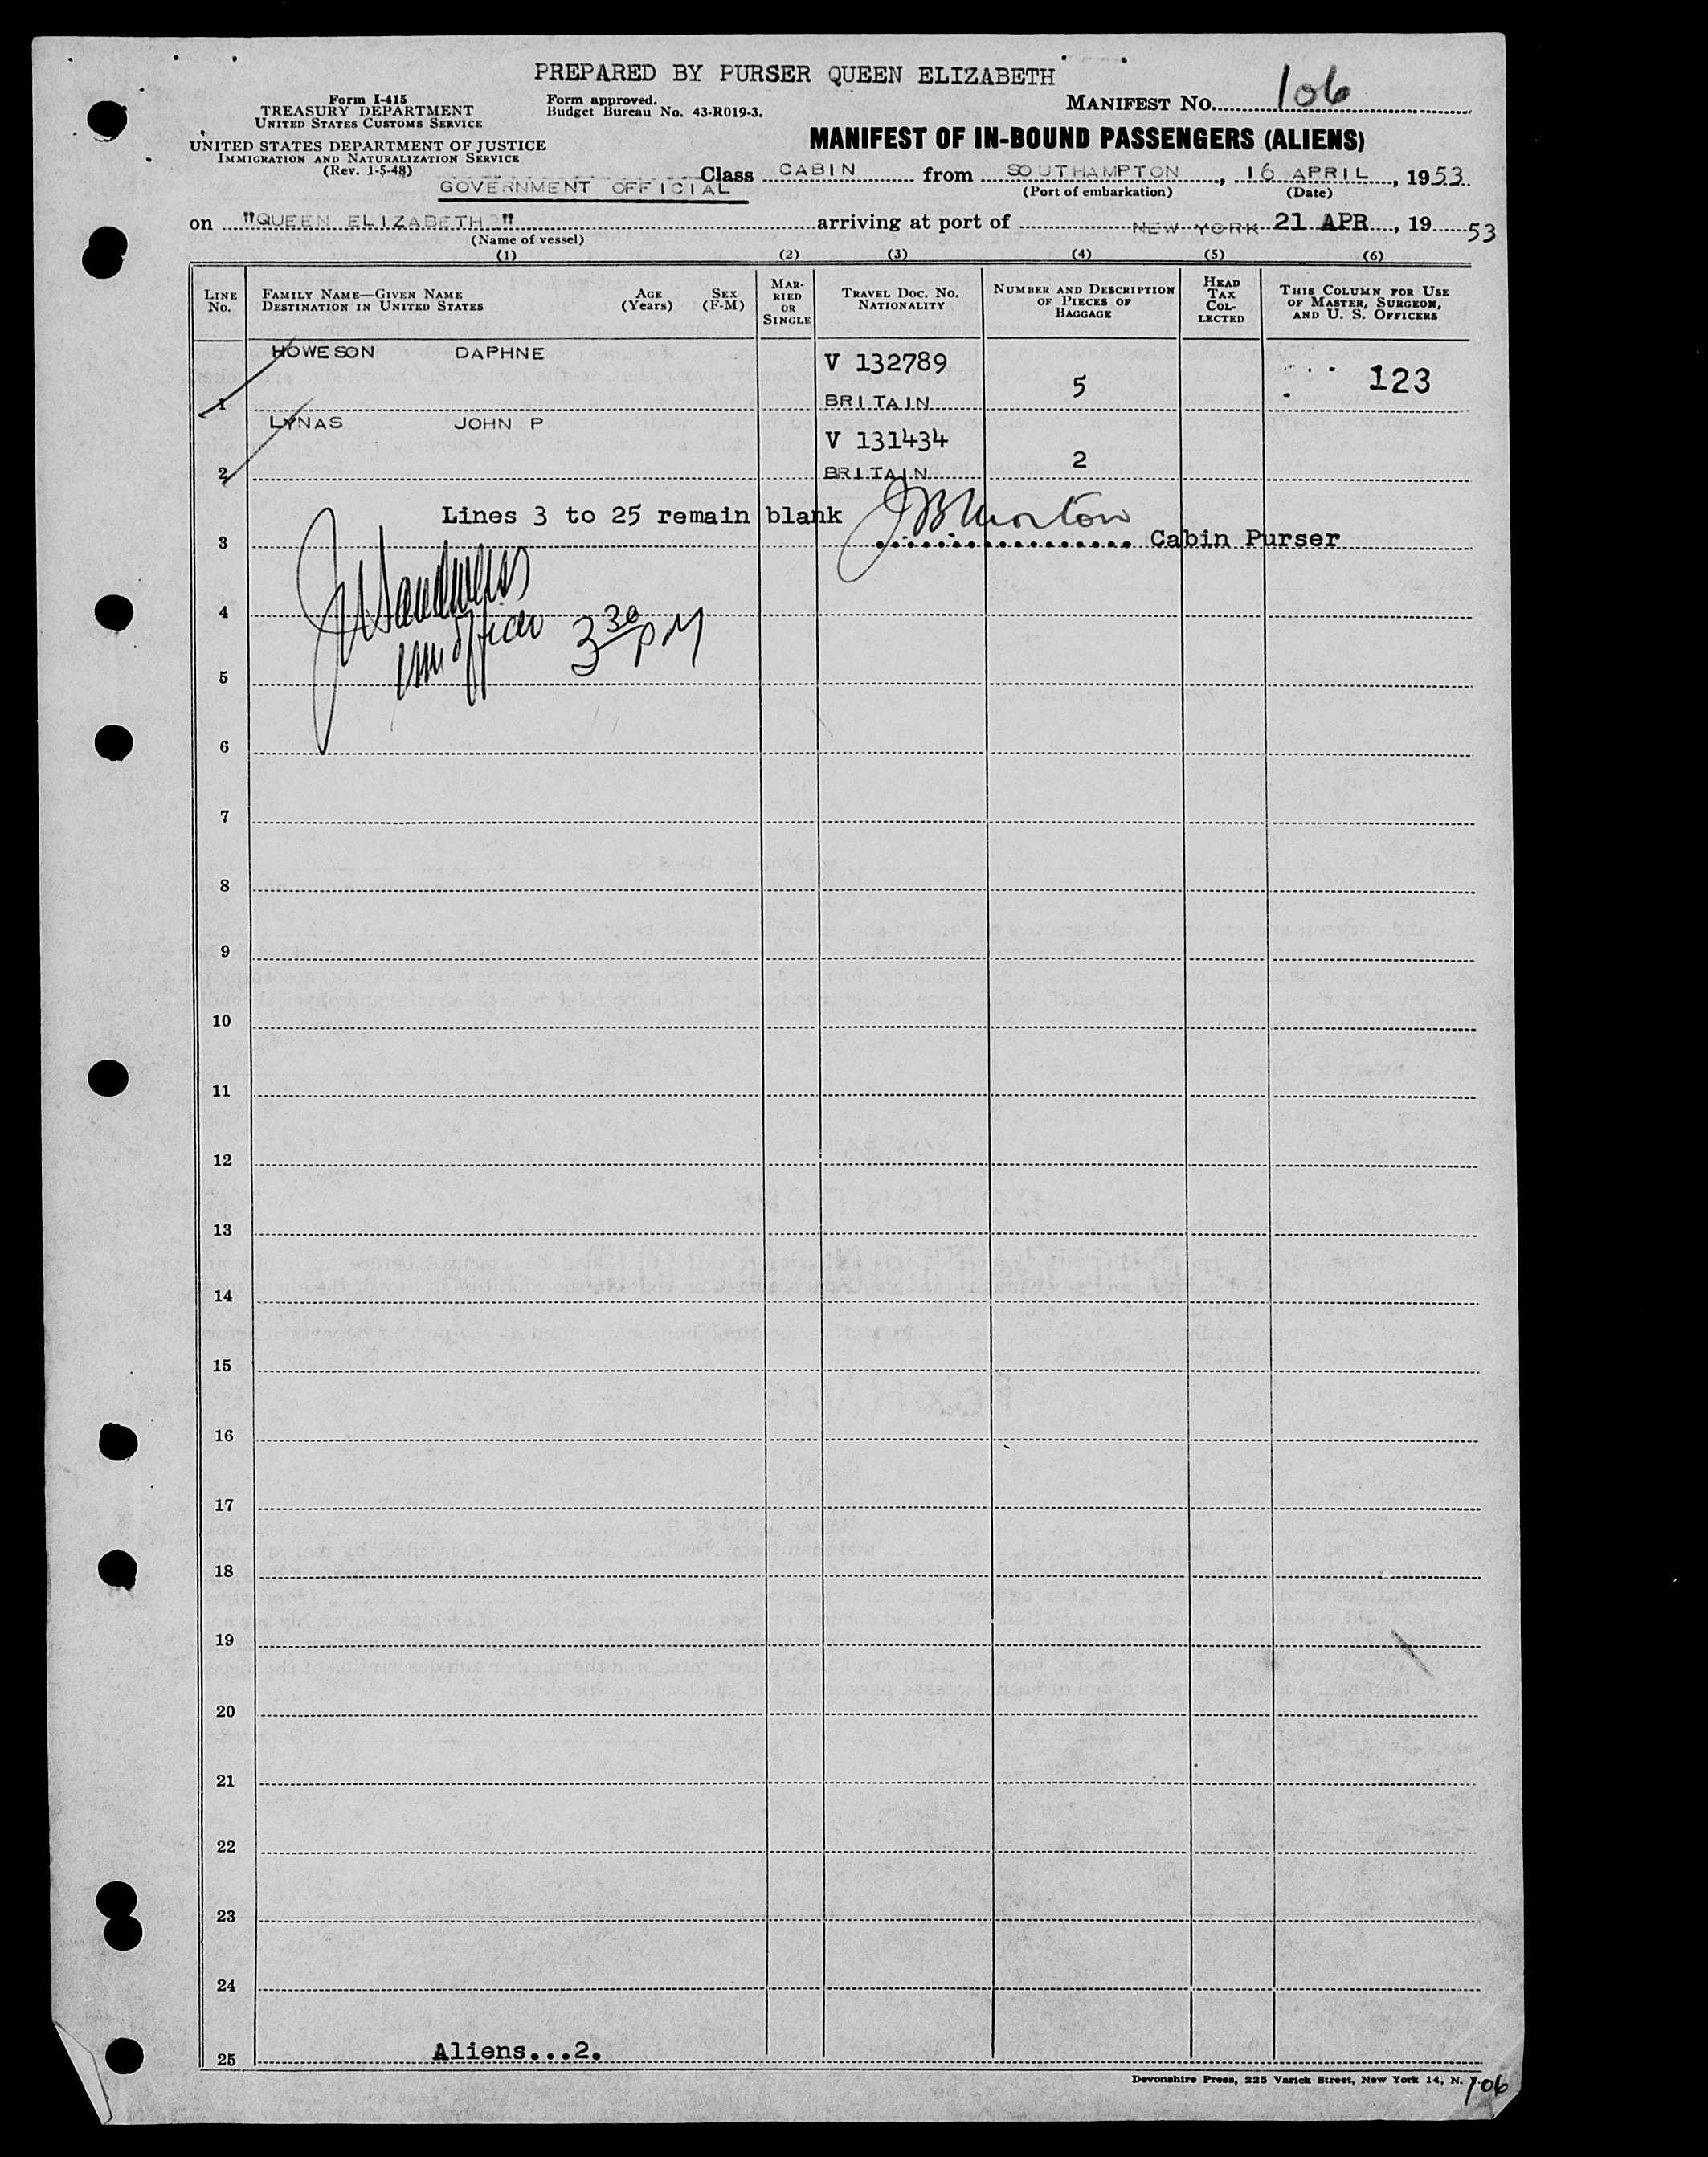 PREPARED BY PURSER QUEEN ELIZABETH
Form I-415
TREASURY DEPARTMENT
UNITED STATES CUSTOMS SERVICE
UNITED STATES DEPARTMENT OF JUSTICE
IMMIGRATION AND NATURALIZATION SERVICE
(Rev. 1-5-48)
Form approved.
Budget Bureau No. 43-R019-3.
MANIFEST NO. 106
MANIFEST OF IN-BOUND PASSENGERS (ALIENS)
GOVERNMENT OFFICIAL
Class CABIN from SOUTHAMPTON, 16 APRIL, 1953
(Port of embarkation) (Date)
on "QUEEN ELIZABETH" arriving at port of NEW YORK 21 APR, 19 53
(Name of vessel)
(1) (2) (3) (4) (5) (6)
LINE NO.
FAMILY NAME—GIVEN NAME
DESTINATION IN UNITED STATES
AGE (Years)
SEX (F-M)
MARRIED OR SINGLE
TRAVEL DOC. NO. NATIONALITY
NUMBER AND DESCRIPTION OF PIECES OF BAGGAGE
HEAD TAX COLLECTED
THIS COLUMN FOR USE OF MASTER, SURGEON, AND U. S. OFFICERS
HOWESON DAPHNE
V 132789
5
123
1
BRITAIN
LYNAS JOHN P
V 131434
2
2
BRITAIN
Lines 3 to 25 remain blank
3
Cabin Purser
4
3 30 PM
5
6
7
8
9
10
11
12
13
14
15
16
17
18
19
20
21
22
23
24
25
Aliens...2.
Devonshire Press, 225 Varick Street, New York 14, N. Y.
106